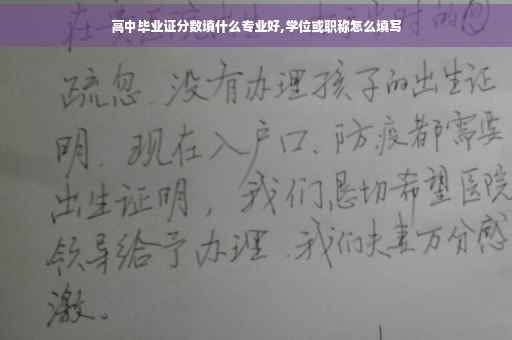 高中毕业证分数填什么专业好,学位或职称怎么填写
疏忽.没有办理孩子的出生证
明.现在入户口、防疫都需要
出生证明，我们恳切希望医院
领导给予办理.我们夫妻万分感
激。